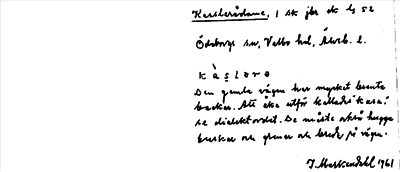 Kasleråsane, 1 sk jbr ek bs 52
Ödeborgs sn, Valbo hd, Älvsb. l.
k à s l e r o
Den gamla vägen har mycket branta
backar. Att åka utför kallades "kasa"
se dialektordet. De måste också hugga
buskar och grenar och breda på vägen.
J. Markendahl 1961